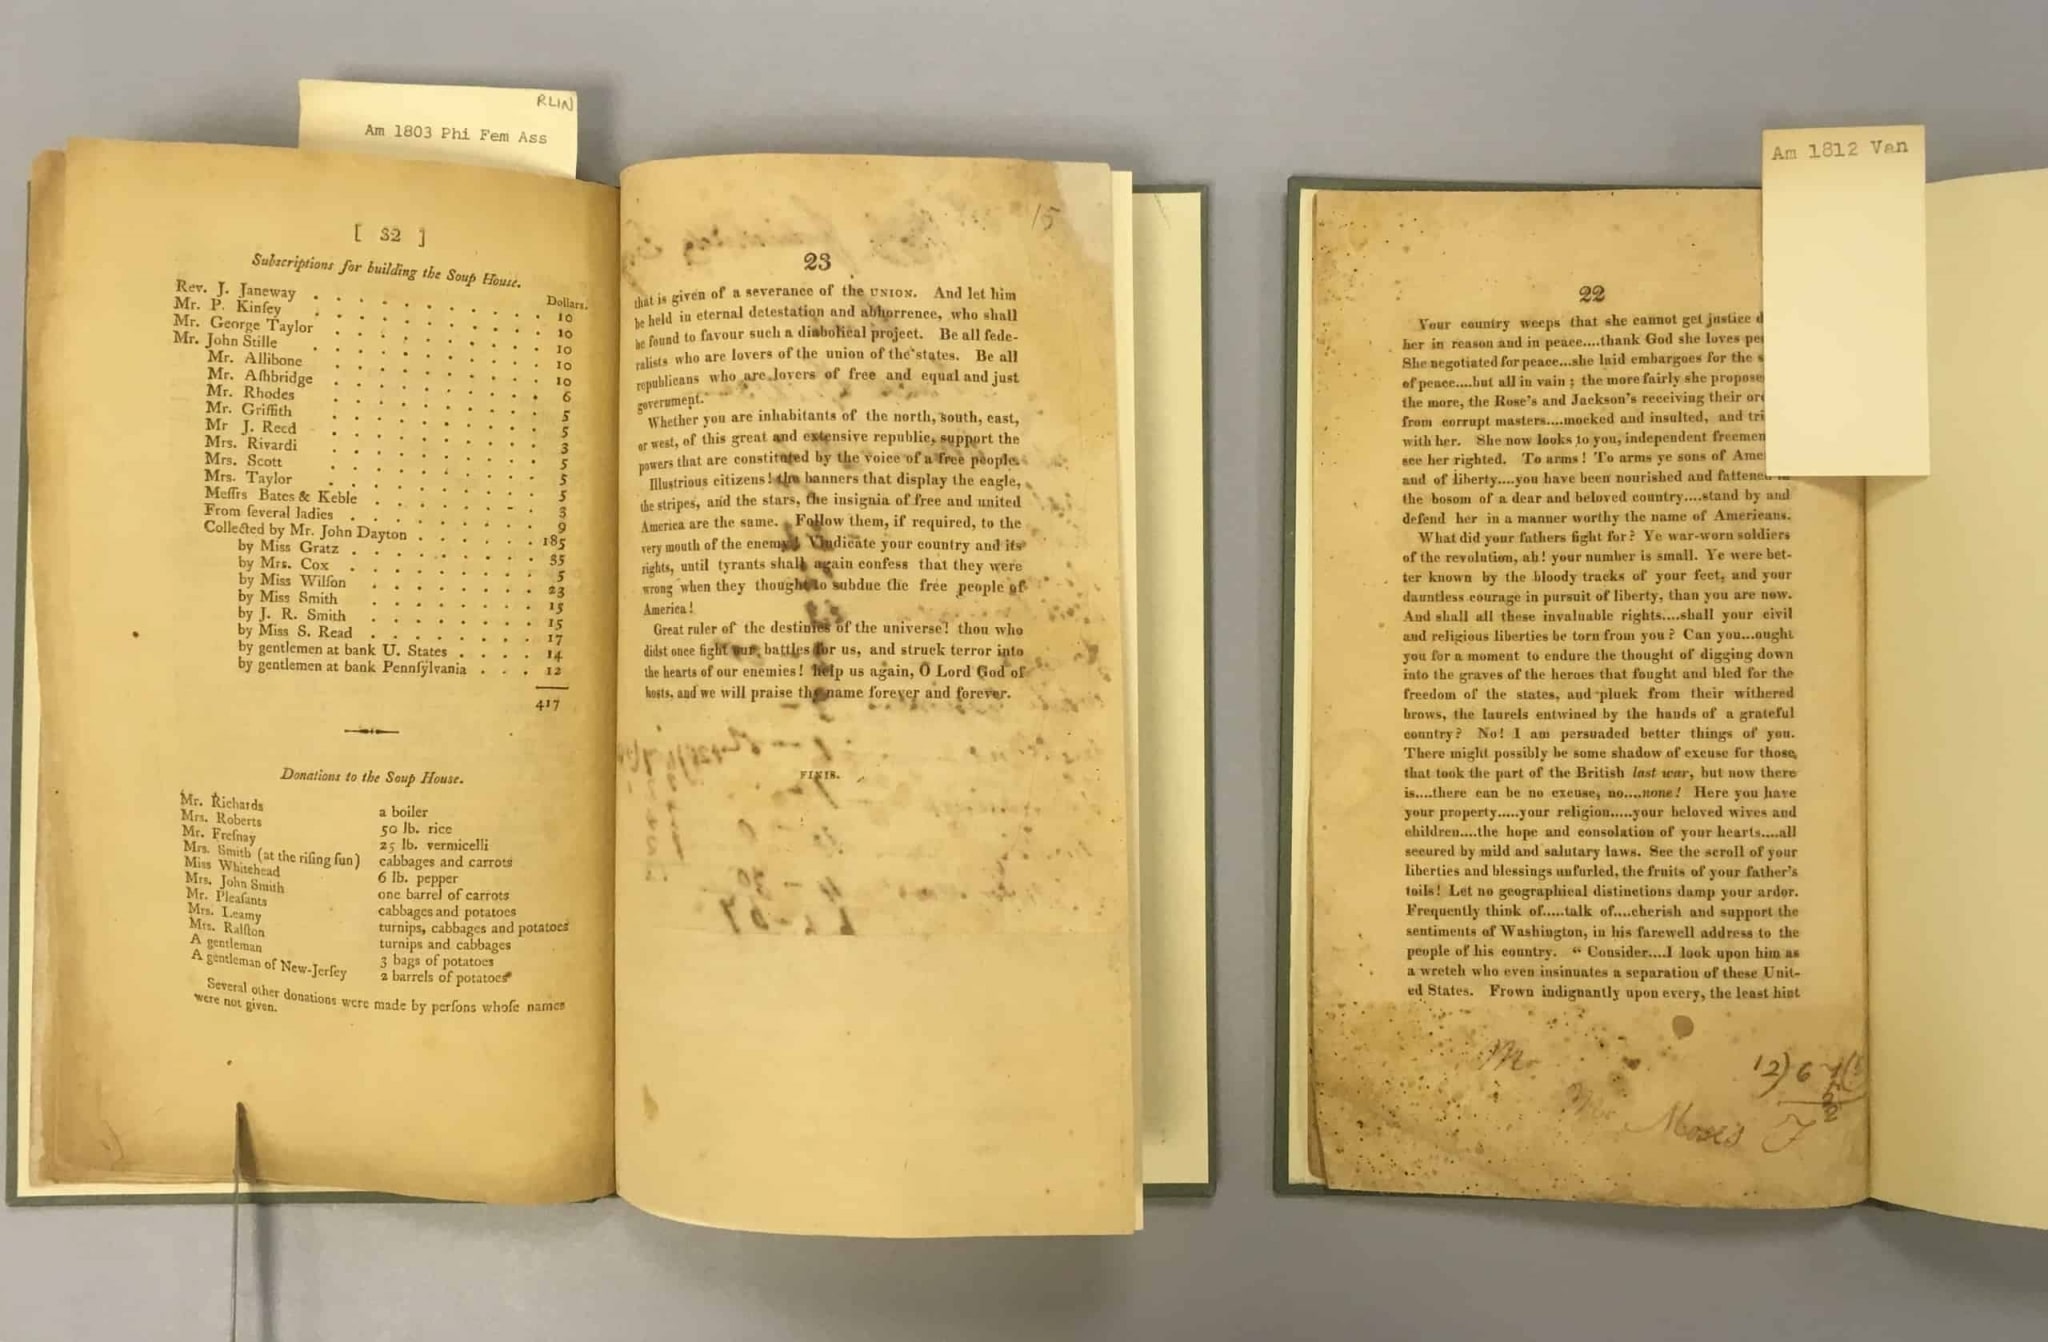 RLIN
Am 1803 Phi Fem Ass
[ 32 ]
Subscriptions for building the Soup House.
Dollars.
Rev. J. Janeway . . . . . . . . . . 10
Mr. P. Kinſey . . . . . . . . . . 10
Mr. George Taylor . . . . . . . . . 10
Mr. John Stille . . . . . . . . . . 10
Mr. Allibone . . . . . . . . . 10
Mr. Aſhbridge . . . . . . . . . 6
Mr. Rhodes . . . . . . . . . 5
Mr. Griffith . . . . . . . . . 5
Mr J. Reed . . . . . . . . . 3
Mrs. Rivardi . . . . . . . . . 5
Mrs. Scott . . . . . . . . . 5
Mrs. Taylor . . . . . . . . . 5
Meſſrs Bates & Keble . . . . . . . 3
From ſeveral ladies . . . . . . . . 9
Collected by Mr. John Dayton . . . . . 185
by Miss Gratz . . . . . . . 35
by Mrs. Cox . . . . . . . 5
by Miss Wilſon . . . . . . . 23
by Miss Smith . . . . . . . 15
by J. R. Smith . . . . . . . 15
by Miss S. Read . . . . . . . 17
by gentlemen at bank U. States . . . . 14
by gentlemen at bank Pennſylvania . . . 12
417
Donations to the Soup House.
Mr. Richards a boiler
Mrs. Roberts 50 lb. rice
Mr. Freſnay 25 lb. vermicelli
Mrs. Smith (at the riſing ſun) cabbages and carrots
Miss Whitehead 6 lb. pepper
Mrs. John Smith one barrel of carrots
Mr. Pleaſants cabbages and potatoes
Mrs. Leamy turnips, cabbages and potatoes
Mrs. Ralſton turnips and cabbages
A gentleman 3 bags of potatoes
A gentleman of New-Jerſey 2 barrels of potatoes
Several other donations were made by perſons whoſe names
were not given.
15
23
that is given of a severance of the UNION. And let him
be held in eternal detestation and abhorrence, who shall
be found to favour such a diabolical project. Be all fede-
ralists who are lovers of the union of the states. Be all
republicans who are lovers of free and equal and just
government.
Whether you are inhabitants of the north, south, east,
or west, of this great and extensive republic, support the
powers that are constituted by the voice of a free people.
Illustrious citizens! the banners that display the eagle,
the stripes, and the stars, the insignia of free and united
America are the same. Follow them, if required, to the
very mouth of the enemy! Vindicate your country and its
rights, until tyrants shall again confess that they were
wrong when they thought to subdue the free people of
America!
Great ruler of the destinies of the universe! thou who
didst once fight our battles for us, and struck terror into
the hearts of our enemies! help us again, O Lord God of
hosts, and we will praise thy name forever and forever.
FINIS.
Am 1812 Van
22
Your country weeps that she cannot get justice d
her in reason and in peace....thank God she loves pe
She negotiated for peace...she laid embargoes for the s
of peace....but all in vain; the more fairly she propose
the more, the Rose's and Jackson's receiving their or
from corrupt masters....mocked and insulted, and tri
with her. She now looks to you, independent freemen
see her righted. To arms! To arms ye sons of Ame
and of liberty....you have been nourished and fattened
the bosom of a dear and beloved country....stand by and
defend her in a manner worthy the name of Americans.
What did your fathers fight for? Ye war-worn soldiers
of the revolution, ah! your number is small. Ye were bet-
ter known by the bloody tracks of your feet, and your
dauntless courage in pursuit of liberty, than you are now.
And shall all these invaluable rights....shall your civil
and religious liberties be torn from you? Can you...ought
you for a moment to endure the thought of digging down
into the graves of the heroes that fought and bled for the
freedom of the states, and pluck from their withered
brows, the laurels entwined by the hands of a grateful
country? No! I am persuaded better things of you.
There might possibly be some shadow of excuse for those,
that took the part of the British last war, but now there
is....there can be no excuse, no....none! Here you have
your property.....your religion.....your beloved wives and
children....the hope and consolation of your hearts....all
secured by mild and salutary laws. See the scroll of your
liberties and blessings unfurled, the fruits of your father's
toils! Let no geographical distinctions damp your ardor.
Frequently think of.....talk of....cherish and support the
sentiments of Washington, in his farewell address to the
people of his country. “ Consider....I look upon him as
a wretch who even insinuates a separation of these Unit-
ed States. Frown indignantly upon every, the least hint
Mr
12) 6
Moses